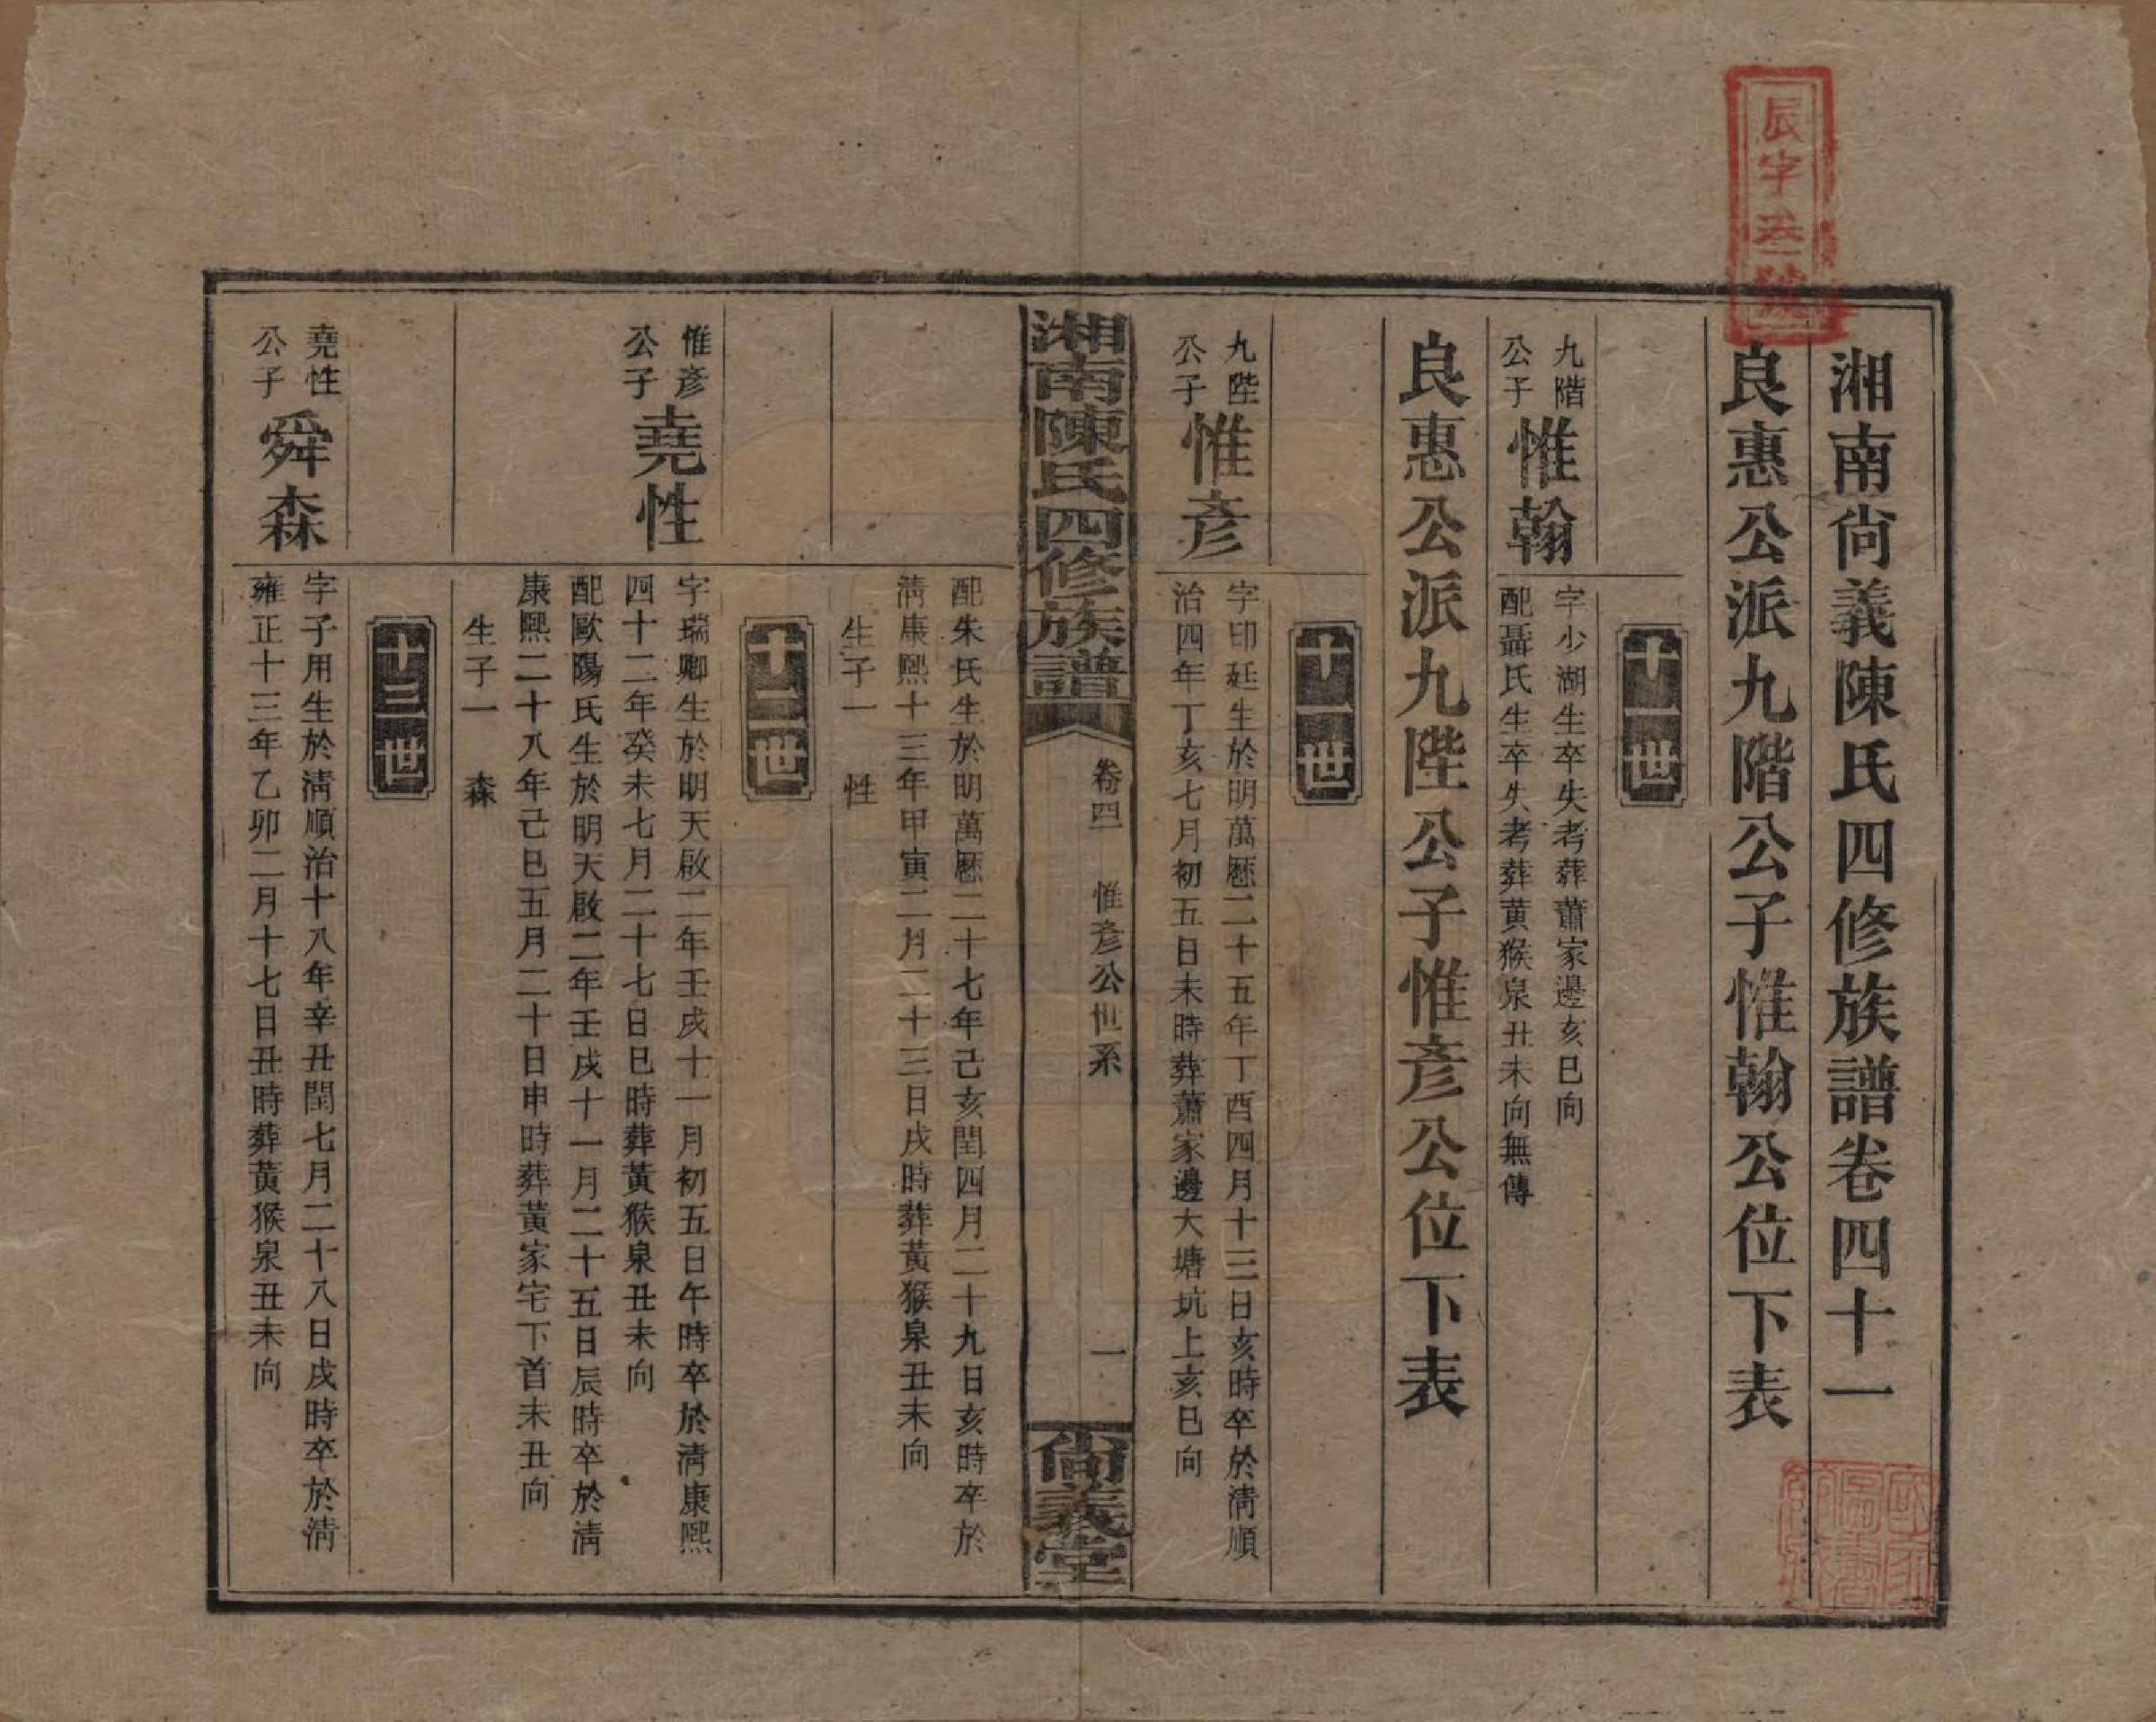 辰字卷一號
湘南尙義陳氏四修族譜卷四十一
良惠公派九階公子惟翰公位下表
十一世
九階公子
惟翰
字少湖生卒失考葬蕭家邊亥巳向
配聶氏生卒失考葬黃猴泉丑未向無傳
良惠公派九陛公子惟彥公位下表
十一世
九陛公子
惟彥
字印廷生於明萬曆二十五年丁酉四月十三日亥時卒於淸順
治四年丁亥七月初五日未時葬蕭家邊大塘坑上亥巳向
湘南陳氏四修族譜
卷四一
惟彥公世系
一
尙義堂
配朱氏生於明萬曆二十七年己亥閏四月二十九日亥時卒於
淸康熙十三年甲寅二月二十三日戌時葬黃猴泉丑未向
生子一　性
十二世
惟彥公子
堯性
字瑞卿生於明天啟二年壬戌十一月初五日午時卒於淸康熙
四十二年癸未七月二十七日巳時葬黃猴泉丑未向
配歐陽氏生於明天啟二年壬戌十一月二十五日辰時卒於淸
康熙二十八年己巳五月二十日申時葬黃家宅下首未丑向
生子一　森
十三世
堯性公子
舜森
字子用生於淸順治十八年辛丑閏七月二十八日戌時卒於淸
雍正十三年乙卯二月十七日丑時葬黃猴泉丑未向